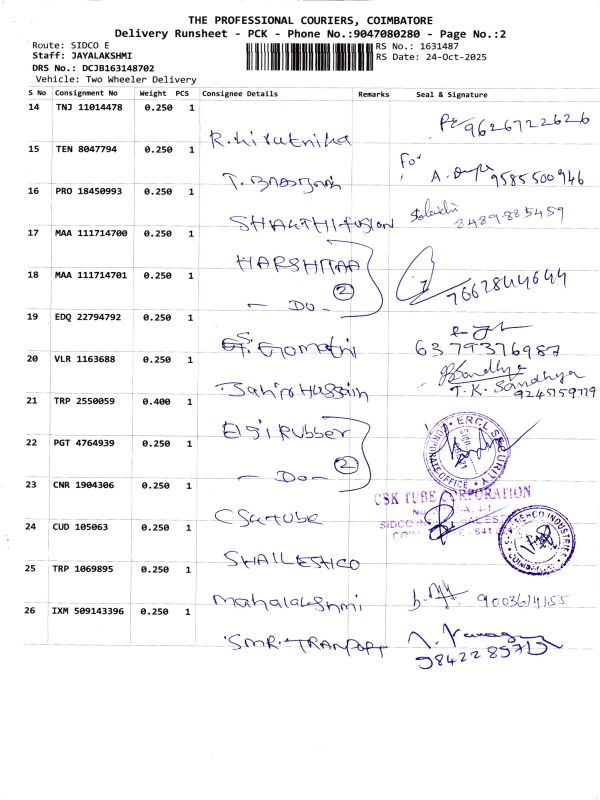 THE PROFESSIONAL COURIERS, COIMBATORE
Delivery Runsheet - PCK - Phone No.:9047080280 - Page No.:2
Route: SIDCO E
RS No.: 1631487
Staff: JAYALAKSHMI
RS Date: 24-Oct-2025
DRS No.: DCJB163148702
Vehicle: Two Wheeler Delivery
S No Consignment No Weight PCS Consignee Details Remarks Seal & Signature
14 TNJ 11014478 0.250 1
R.Kirutnika 9626722626
15 TEN 8047794 0.250 1
For
A. 9585500946
16 PRO 18450993 0.250 1
SHAKTHI fusion 8489885459
17 MAA 111714700 0.250 1
HARSHITAA
18 MAA 111714701 0.250 1
2
- DO - 7662844644
19 EDQ 22794792 0.250 1
Gomathi 6379376987
20 VLR 1163688 0.250 1
Sandhya
Jahir Hussain T.K. Sandhya
9245759729
21 TRP 2550059 0.400 1
Elgi Rubber
22 PGT 4764939 0.250 1
2
- DO -
ERCL SECURITY
CORPORATE OFFICE
23 CNR 1904306 0.250 1
CSK TUBE CORPORATION
CSK TUBE
SIDCO
24 CUD 105063 0.250 1
SHAILESHCO
INDUSTRIES
25 TRP 1069895 0.250 1
Mahalakshmi 9003614155
26 IXM 509143396 0.250 1
SMR. TRANPORT
9842289715